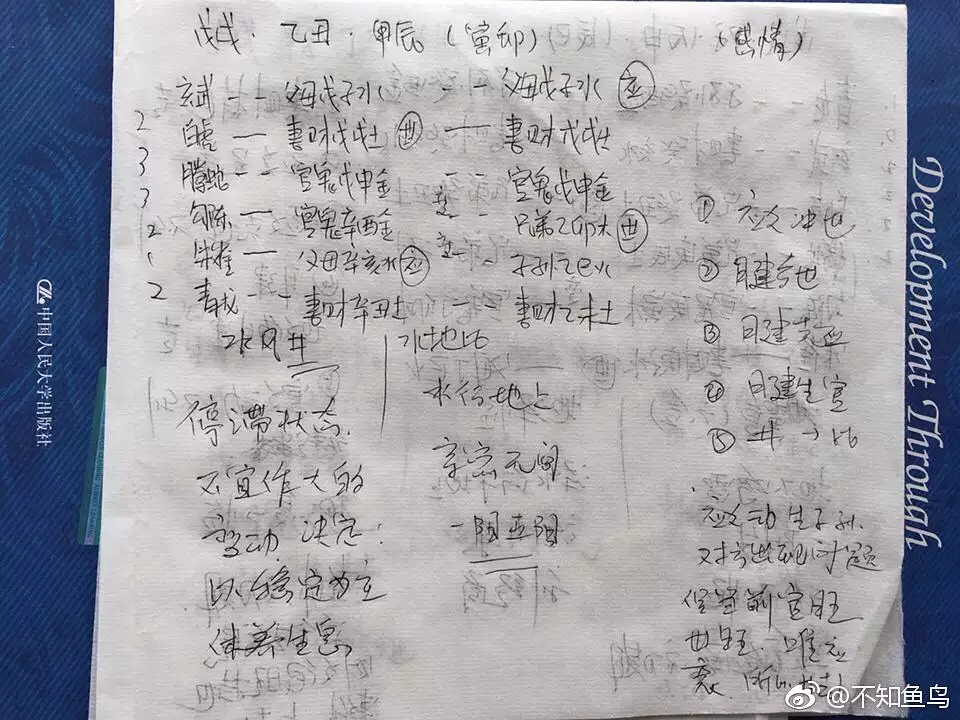 戊戌·乙丑·甲辰(寅卯) (感情)
玄武 -- 父母戊子水 -- 父母戊子水 应
2 白虎 — 妻财戊戌土 世 — 妻财戊戌土
3 腾蛇 -- 官鬼戊申金 -- 官鬼戊申金
3 勾陈 — 官鬼辛酉金 -- 兄弟乙卯木 世
2 朱雀 — 父母辛亥水 应 -- 子孙乙巳火
2 青龙 -- 妻财辛丑土 妻财乙未土
水风井
停滞状态
不宜作大的
变动 决定:
以稳定为主
休养生息
水地比
水行地上
亲密无间
一阳五阴
① 应爻冲世
② 日建合世
③ 日建克应
④ 日建生官
⑤ 井→比
应爻动生子孙
对方出现问题
但当前官旺
世旺 唯应
衰
中国人民大学出版社
Development Through
@不知鱼鸟